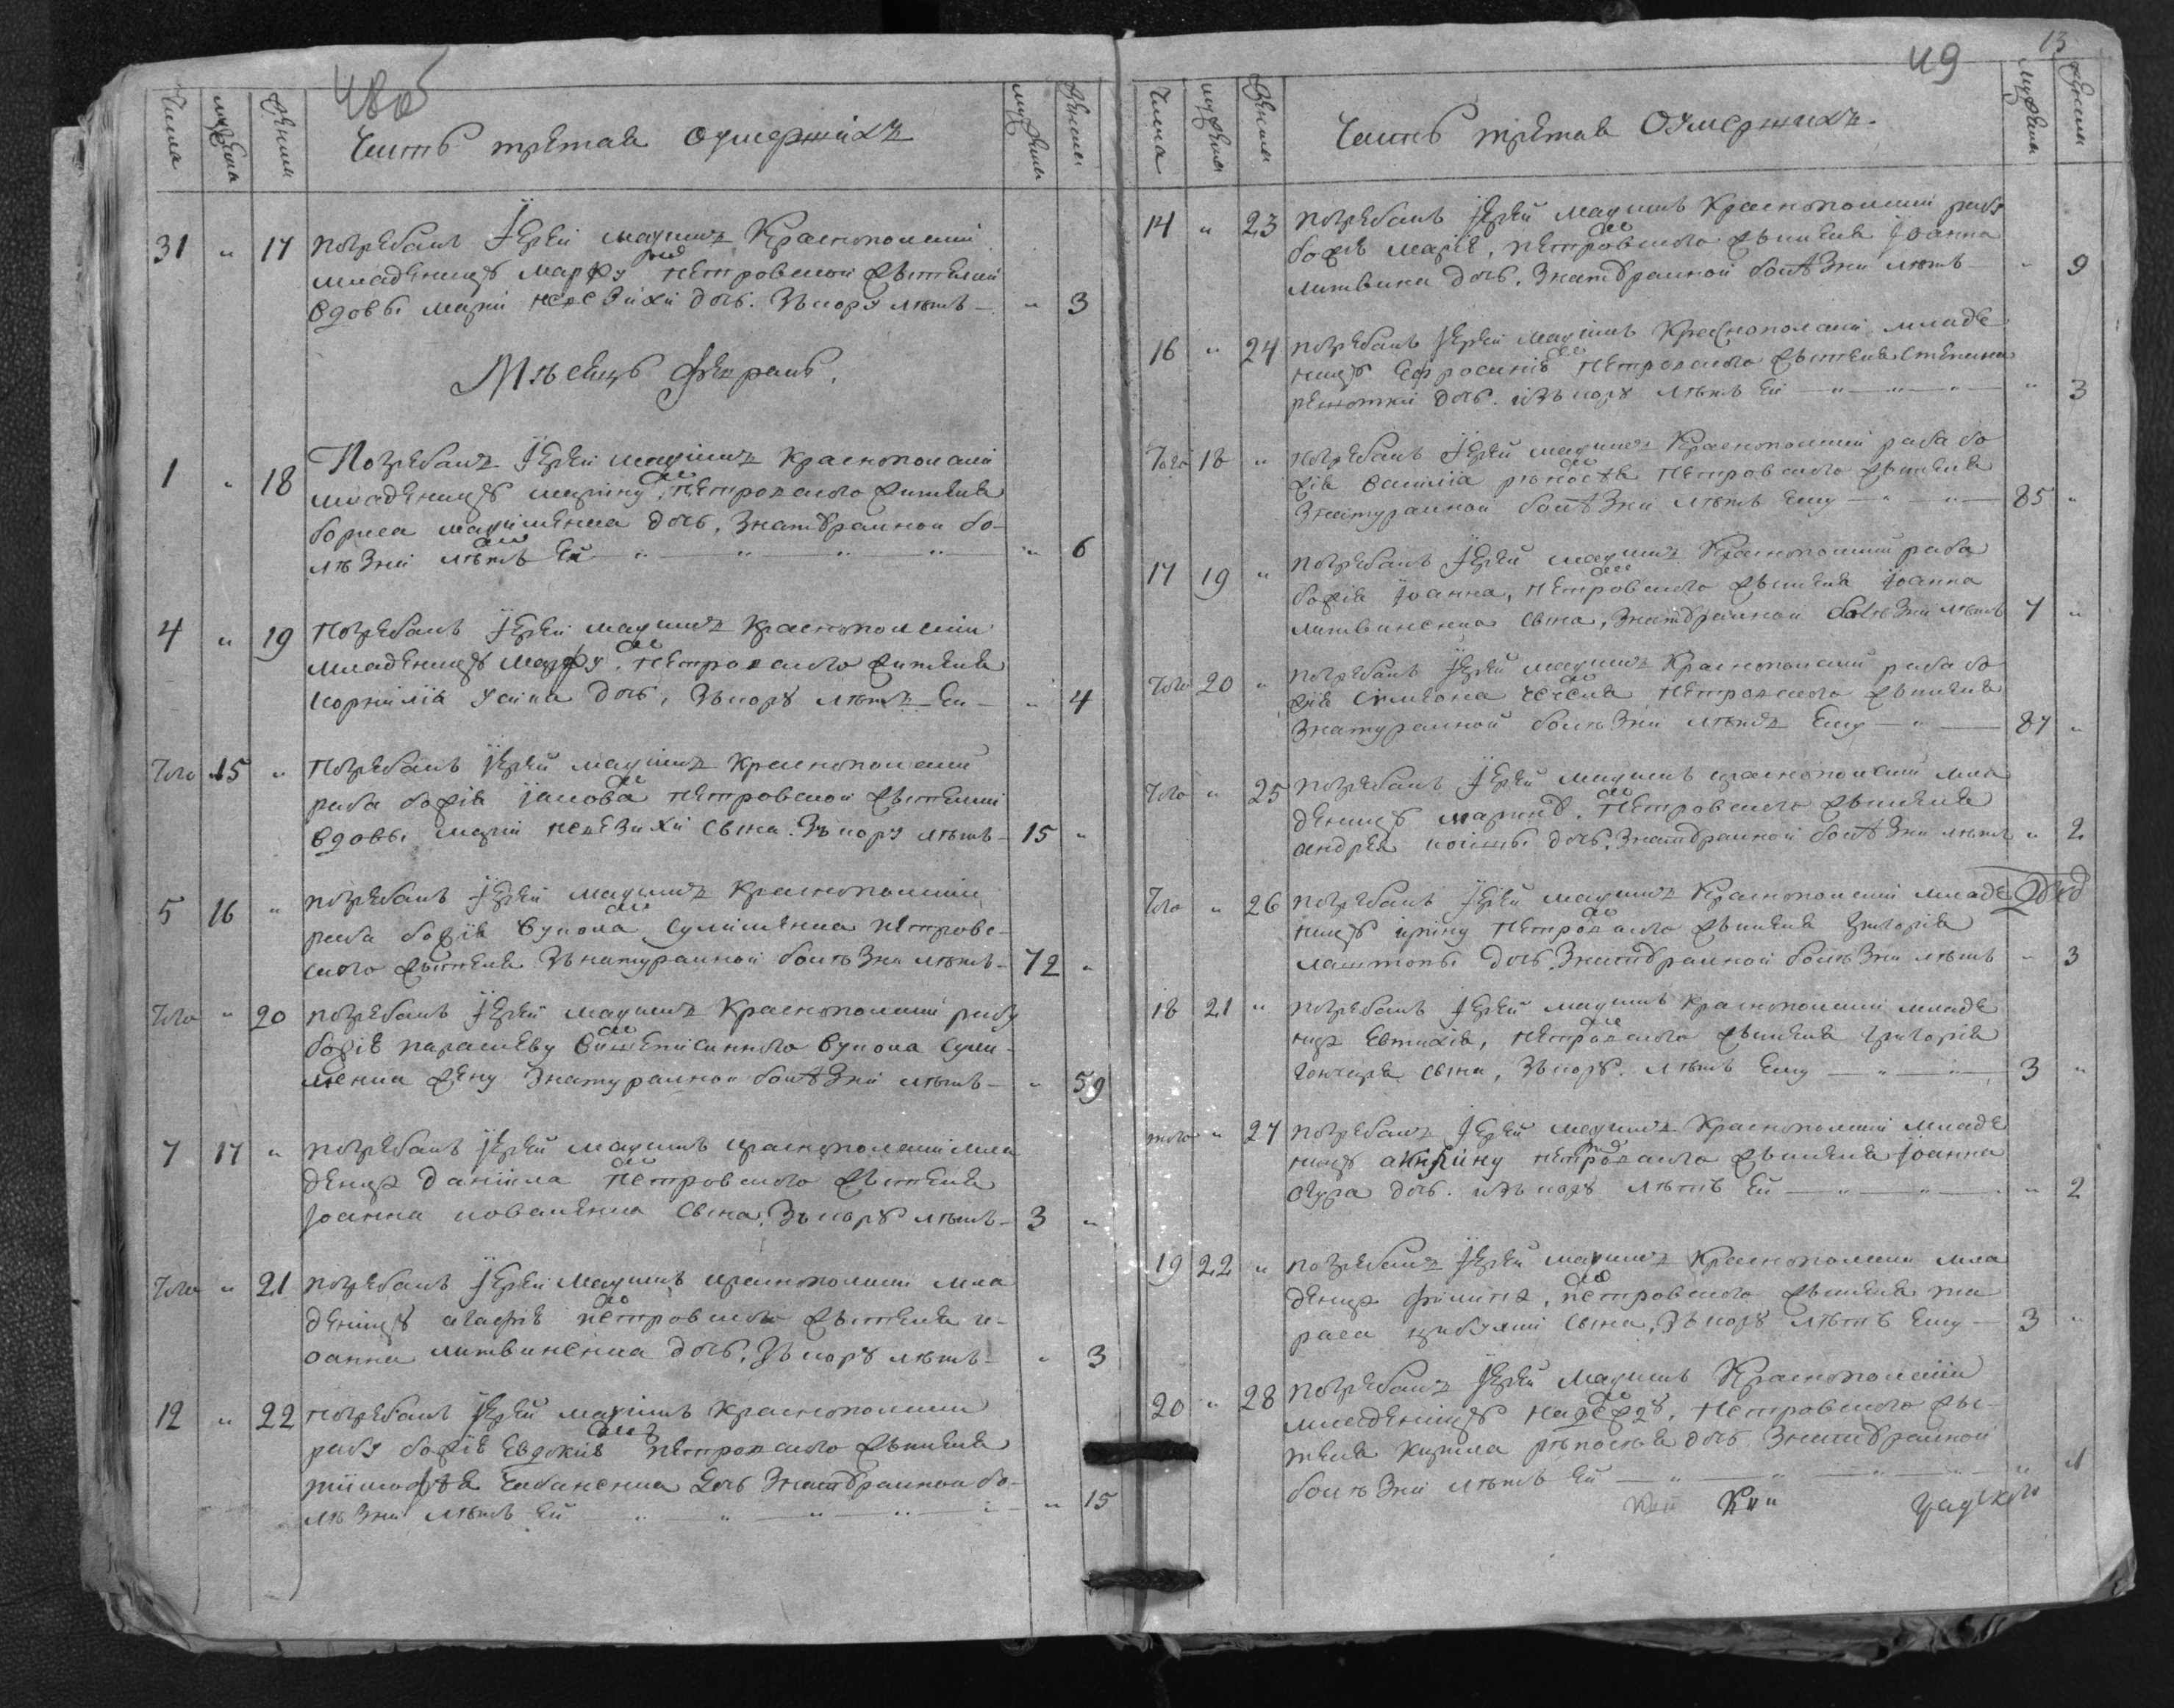 48об
Числа мужеска женска Часть третая оумершихъ мужеска женска
31 „ 17 погребалъ Іерей маѯимъ Краснополскій
младеницу марфу петровской жителки
вдовы марїи дочь. Зъкору лѣтъ — „ 3
Мѣсецъ февраль.
1 „ 18 Погребалъ Іерей маѯимъ Краснополскій
младеницу марину, петровского жителя
бориса маѯименка дочь, Знатуралной бо-
лѣзни лѣтъ Ей „ „ „ „ 6
4 „ 19 погребалъ Іерей маѯимъ Краснополскій
младеницу марфу, петровского жителя
корнилія дочь, Зъкору лѣтъ Ей — „ 4
Того 15 „ погребалъ Іерей маѯимъ Краснополскій
раба божія іакова петровской жителки
вдовы марїи сына. Зъкору лѣтъ — 15 „
5 16 „ погребалъ Іерей маѯимъ Краснополскій
раба божія вукола сулименка петровс-
кого жителя Зънатуралной болѣзни лѣтъ — 72 „
Того „ 20 погребалъ Іерей маѯимъ Краснополскій рабу
божію параскеву вишеписанного вукола сули-
менка жену Знатуралной болѣзни лѣтъ — „ 59
7 17 „ погребалъ Іерей маѯимъ краснополскій мла
денца даніила петровского жителя
Іоанна коваленка сына, Зъкору лѣтъ — 3 „
Того „ 21 погребалъ Іерей маѯимъ краснополскій мла
деницу агафію петровского жителя и-
оанна литвиненка дочь, Зъкору лѣтъ — „ 3
12 „ 22 погребалъ Іерей маѯимъ Краснополскій
рабу божію евдокию петровского жителя
тимофѣя чабаненка дочь Знатуралной бо-
лѣзни лѣтъ Ей „ „ „ „ „ 15
49 13
Числа мужеска женска Часть третая оумершихъ. мужеска женска
14 „ 23 погребалъ Іерей маѯимъ Краснополскій рабу
божію марію, петровского жителя Іоанна
литвина дочь, Знатуралной болѣзни лѣтъ — „ 9
16 „ 24 погребалъ Іерей маѯимъ Краснополскій младе
ницу ефросинію петровского жителя стефана
дочь. изъкору лѣтъ Ей — „ — „ — „ — „ 3
Того 18 „ погребалъ Іерей маѯимъ Краснополскій раба бо
жія василіа петровского жителя
Знатуралной болѣзни лѣтъ Ему — „ — „ — 85 „
17 19 „ погребалъ Іерей маѯимъ Краснополскій раба
божія Іоанна, петровского жителя Іоанна
литвиненка сына, Знатуралной болѣзни лѣтъ 7 „
Того 20 „ погребалъ Іерей маѯимъ Краснополскій раба бо
жія симеона петровского жителя
Знатуралной болѣзни лѣтъ Ему — „ — 87 „
Того „ 25 погребалъ Іерей маѯимъ краснополскій мла
деницу марию, петровского жителя
андрея дочь, Знатуралной болѣзни лѣтъ „ 2
Того „ 26 погребалъ Іерей маѯимъ Краснополскій младе
ницу ирину петровского жителя григорія
дочь, Знатуралной болѣзни лѣтъ „ 3
18 21 „ погребалъ Іерей маѯимъ Краснополскій младе
нца евтихія, петровского жителя григорія
гончара сына, Зъкору. лѣтъ Ему — „ — 3 „
того „ 27 погребалъ Іерей маѯимъ Краснополскій младе
ницу петровского жителя Іоанна
дочь. изъкору лѣтъ Ей — „ — „ — „ 2
19 22 „ погребалъ Іерей маѯимъ Краснополскій мла
денца филипа, петровского жителя та
раса цибулки сына, Зъкору лѣтъ Ему — 3 „
20 „ 28 погребалъ Іерей маѯимъ Краснополскій
младеницу петровского жи-
теля кирила дочь Знатуралной
болѣзни лѣтъ Ей — „ — „ — „ — „ 1